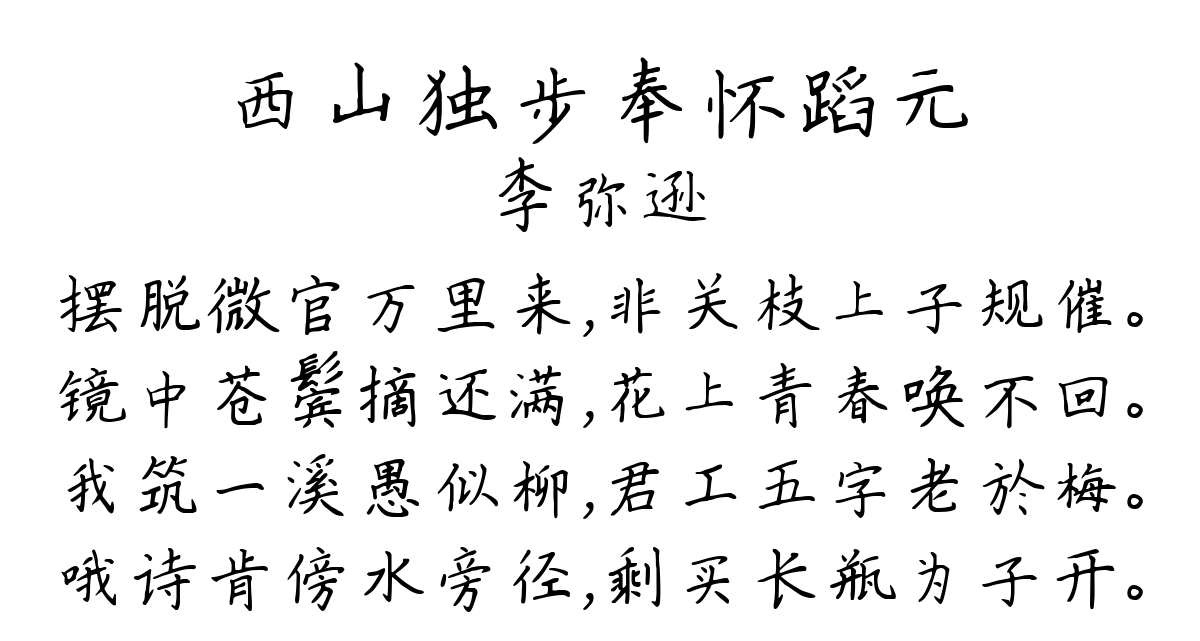 西山独步奉怀蹈元
李弥逊
摆脱微官万里来,非关枝上子规催。
镜中苍鬓摘还满,花上青春唤不回。
我筑一溪愚似柳,君工五字老於梅。
哦诗肯傍水旁径,剩买长瓶为子开。